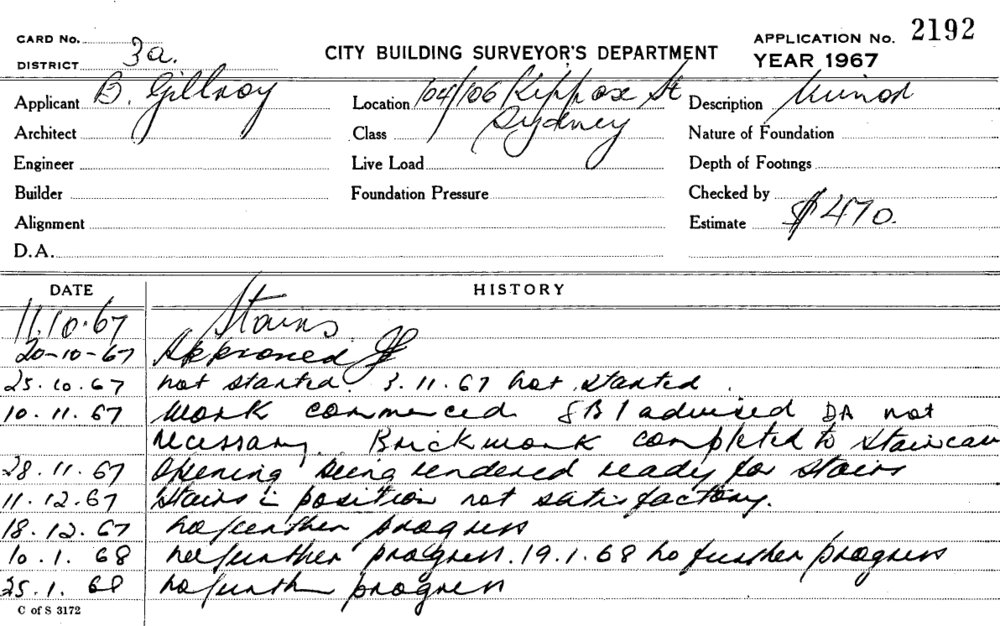 CARD No.
DISTRICT 3a.
CITY BUILDING SURVEYOR'S DEPARTMENT
APPLICATION No. 2192
YEAR 1967
Applicant B. Gillroy Location 104/106 Kippax St Description Minor
Sydney
Architect Class Nature of Foundation
Engineer Live Load Depth of Footings
Builder Foundation Pressure Checked by
Alignment Estimate $470.
D.A.
DATE HISTORY
11.10.67 Stairs.
20-10-67 Approved
25.10.67 not started. 3.11.67 not started.
10.11.67 work commenced SBI advised DA not
necessary. Brickwork completed to staircase
28.11.67 Opening being rendered ready for stairs
11.12.67 Stairs in position not satisfactory.
18.12.67 no further progress
10.1.68 no further progress. 19.1.68 no further progress
25.1.68 no further progress
C of S 3172